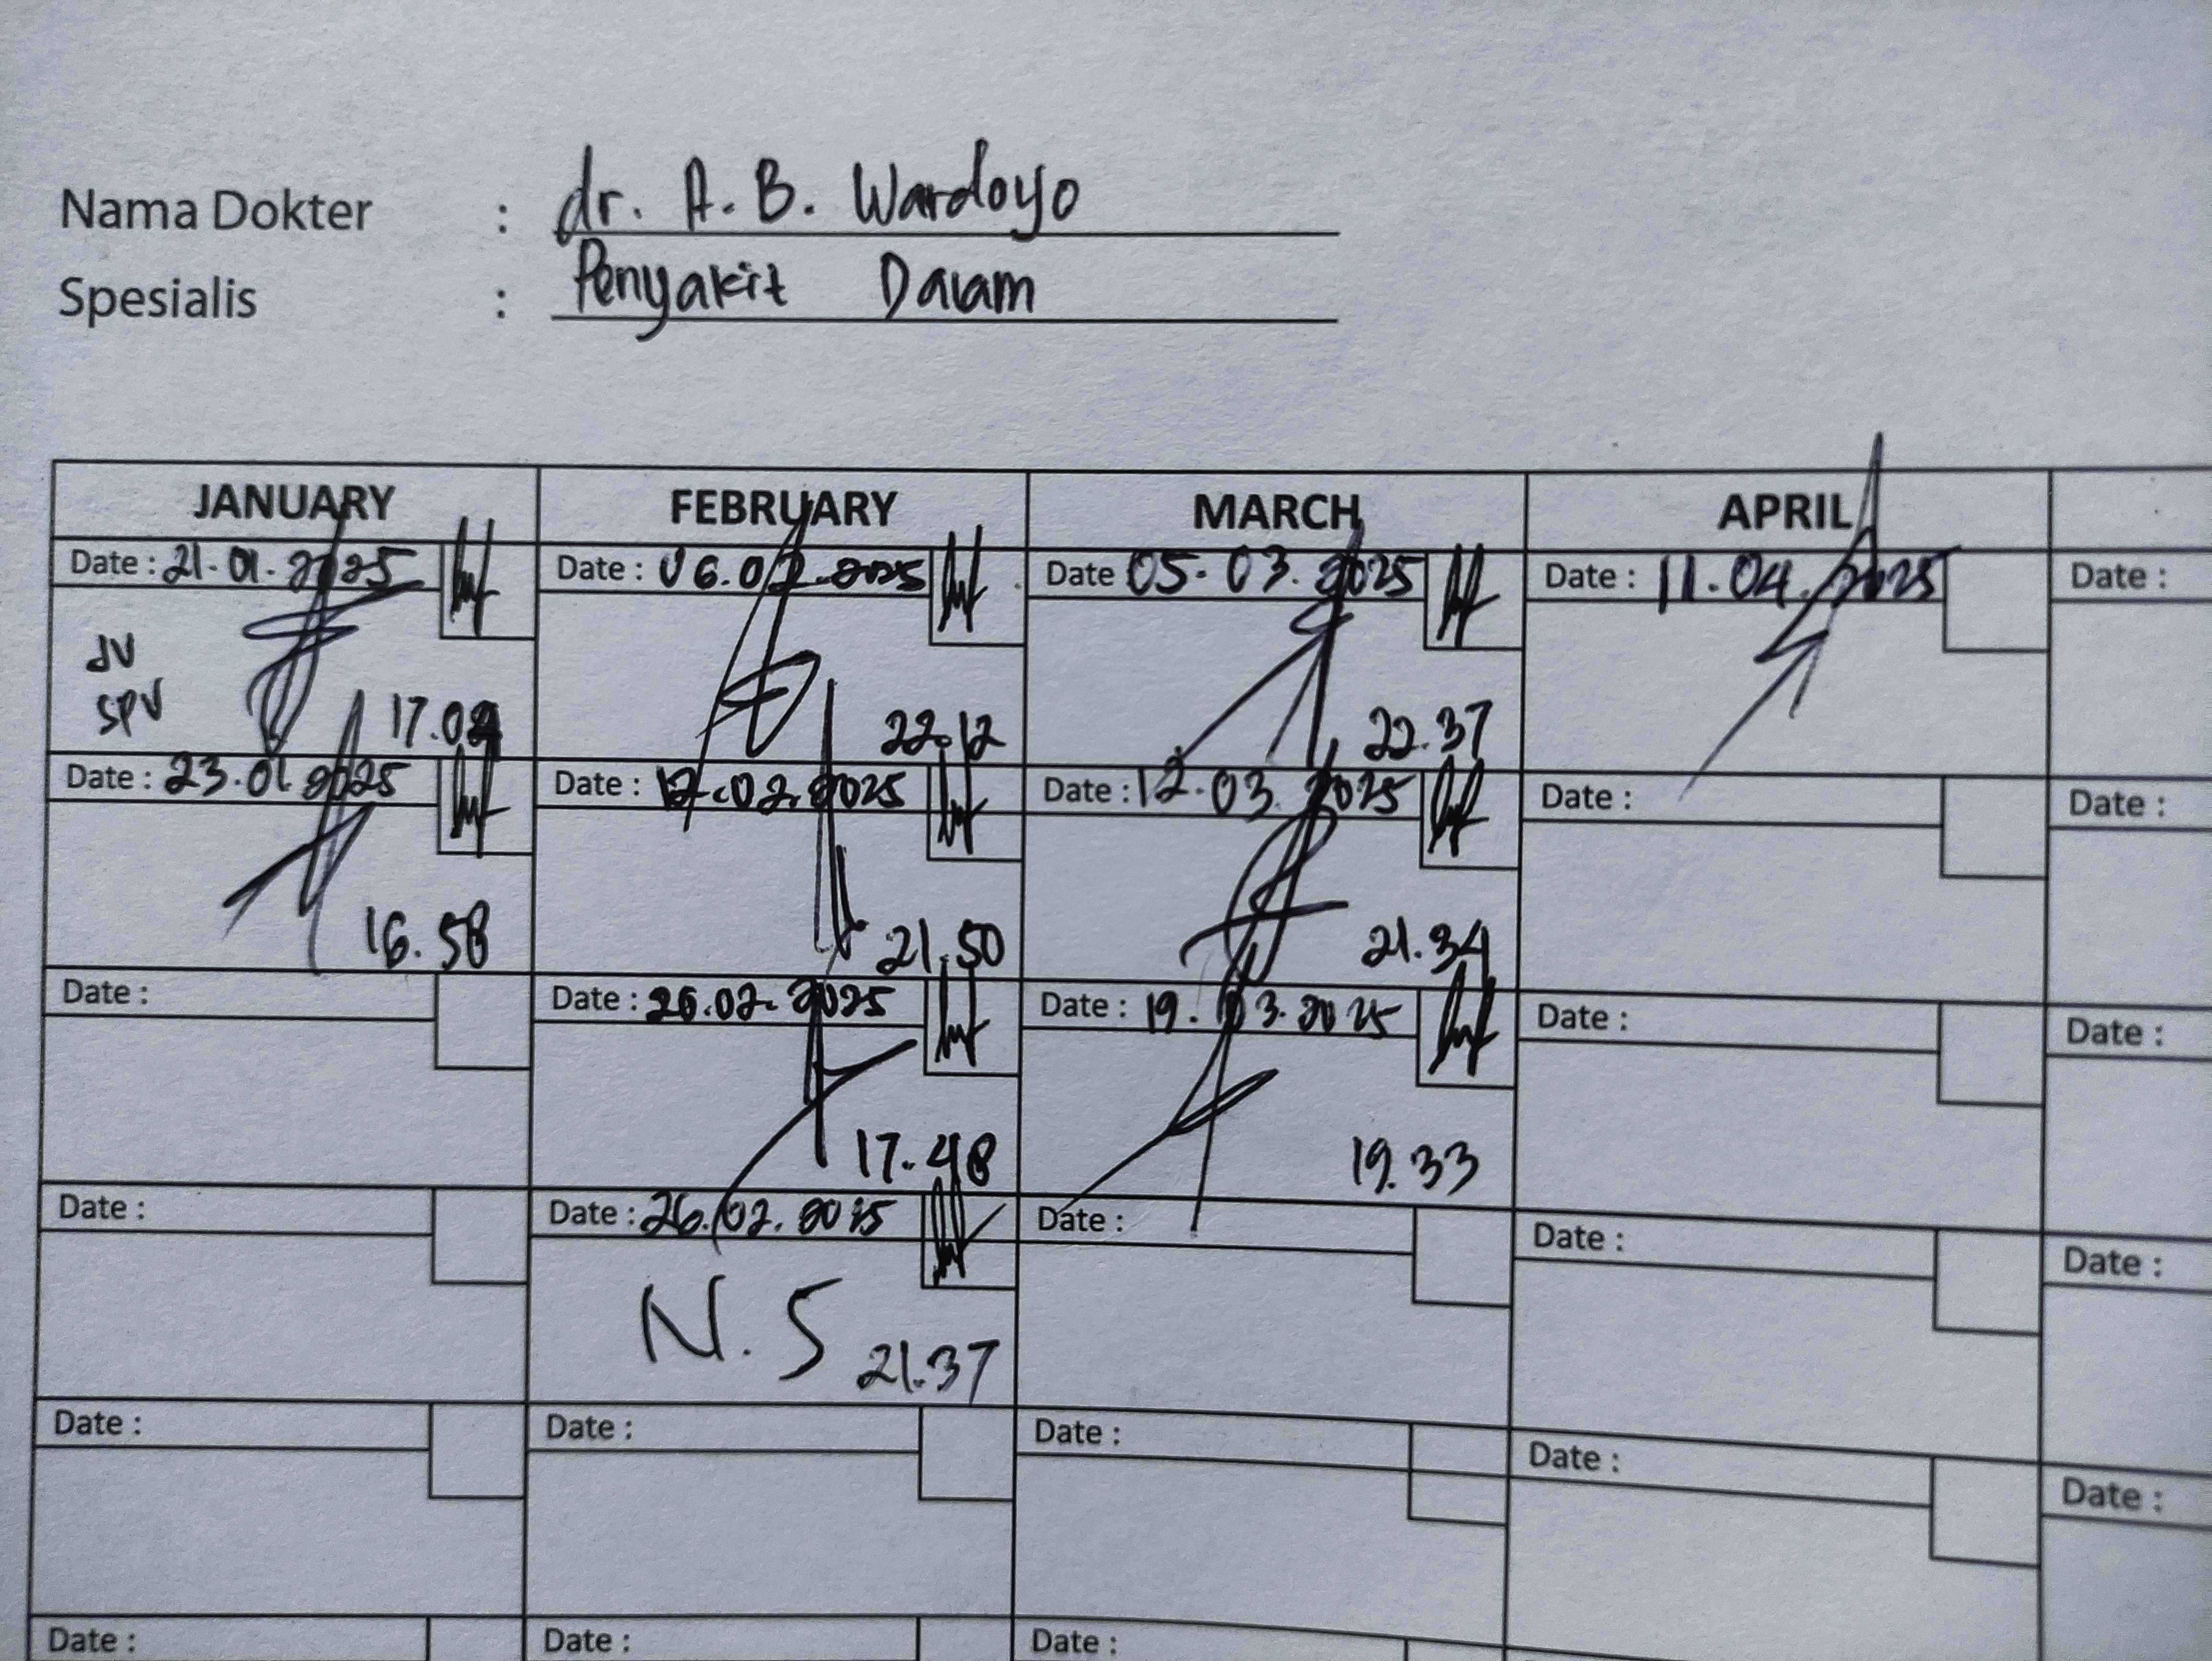 Nama Dokter : dr. A. B. Wardoyo
Spesialis : Penyakit Dalam
JANUARY FEBRUARY MARCH APRIL
Date : 21.01.2025 Date : 06.02.2025 Date 05.03.2025 Date : 11.04.2025 Date :
JV
SPV 17.02 22.12 22.37
Date : 23.01.2025 Date : 12.02.2025 Date : 12.03.2025 Date : Date :
16.58 21.50 21.34
Date : Date : 26.02.2025 Date : 19.03.2025 Date : Date :
17.48 19.33
Date : Date : 26.02.2025 Date : Date : Date :
N.S 21.37
Date : Date : Date : Date : Date :
Date : Date : Date :